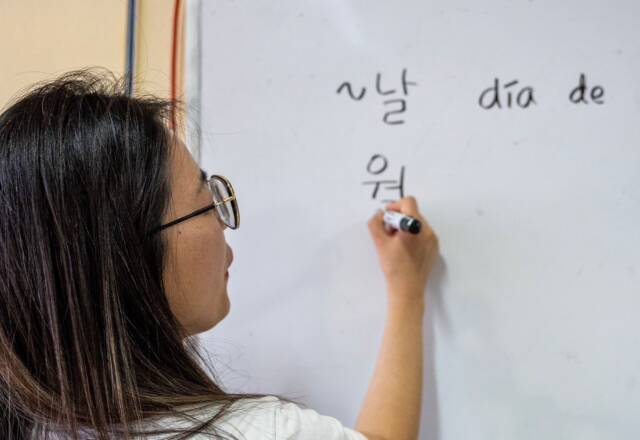 ~날 día de